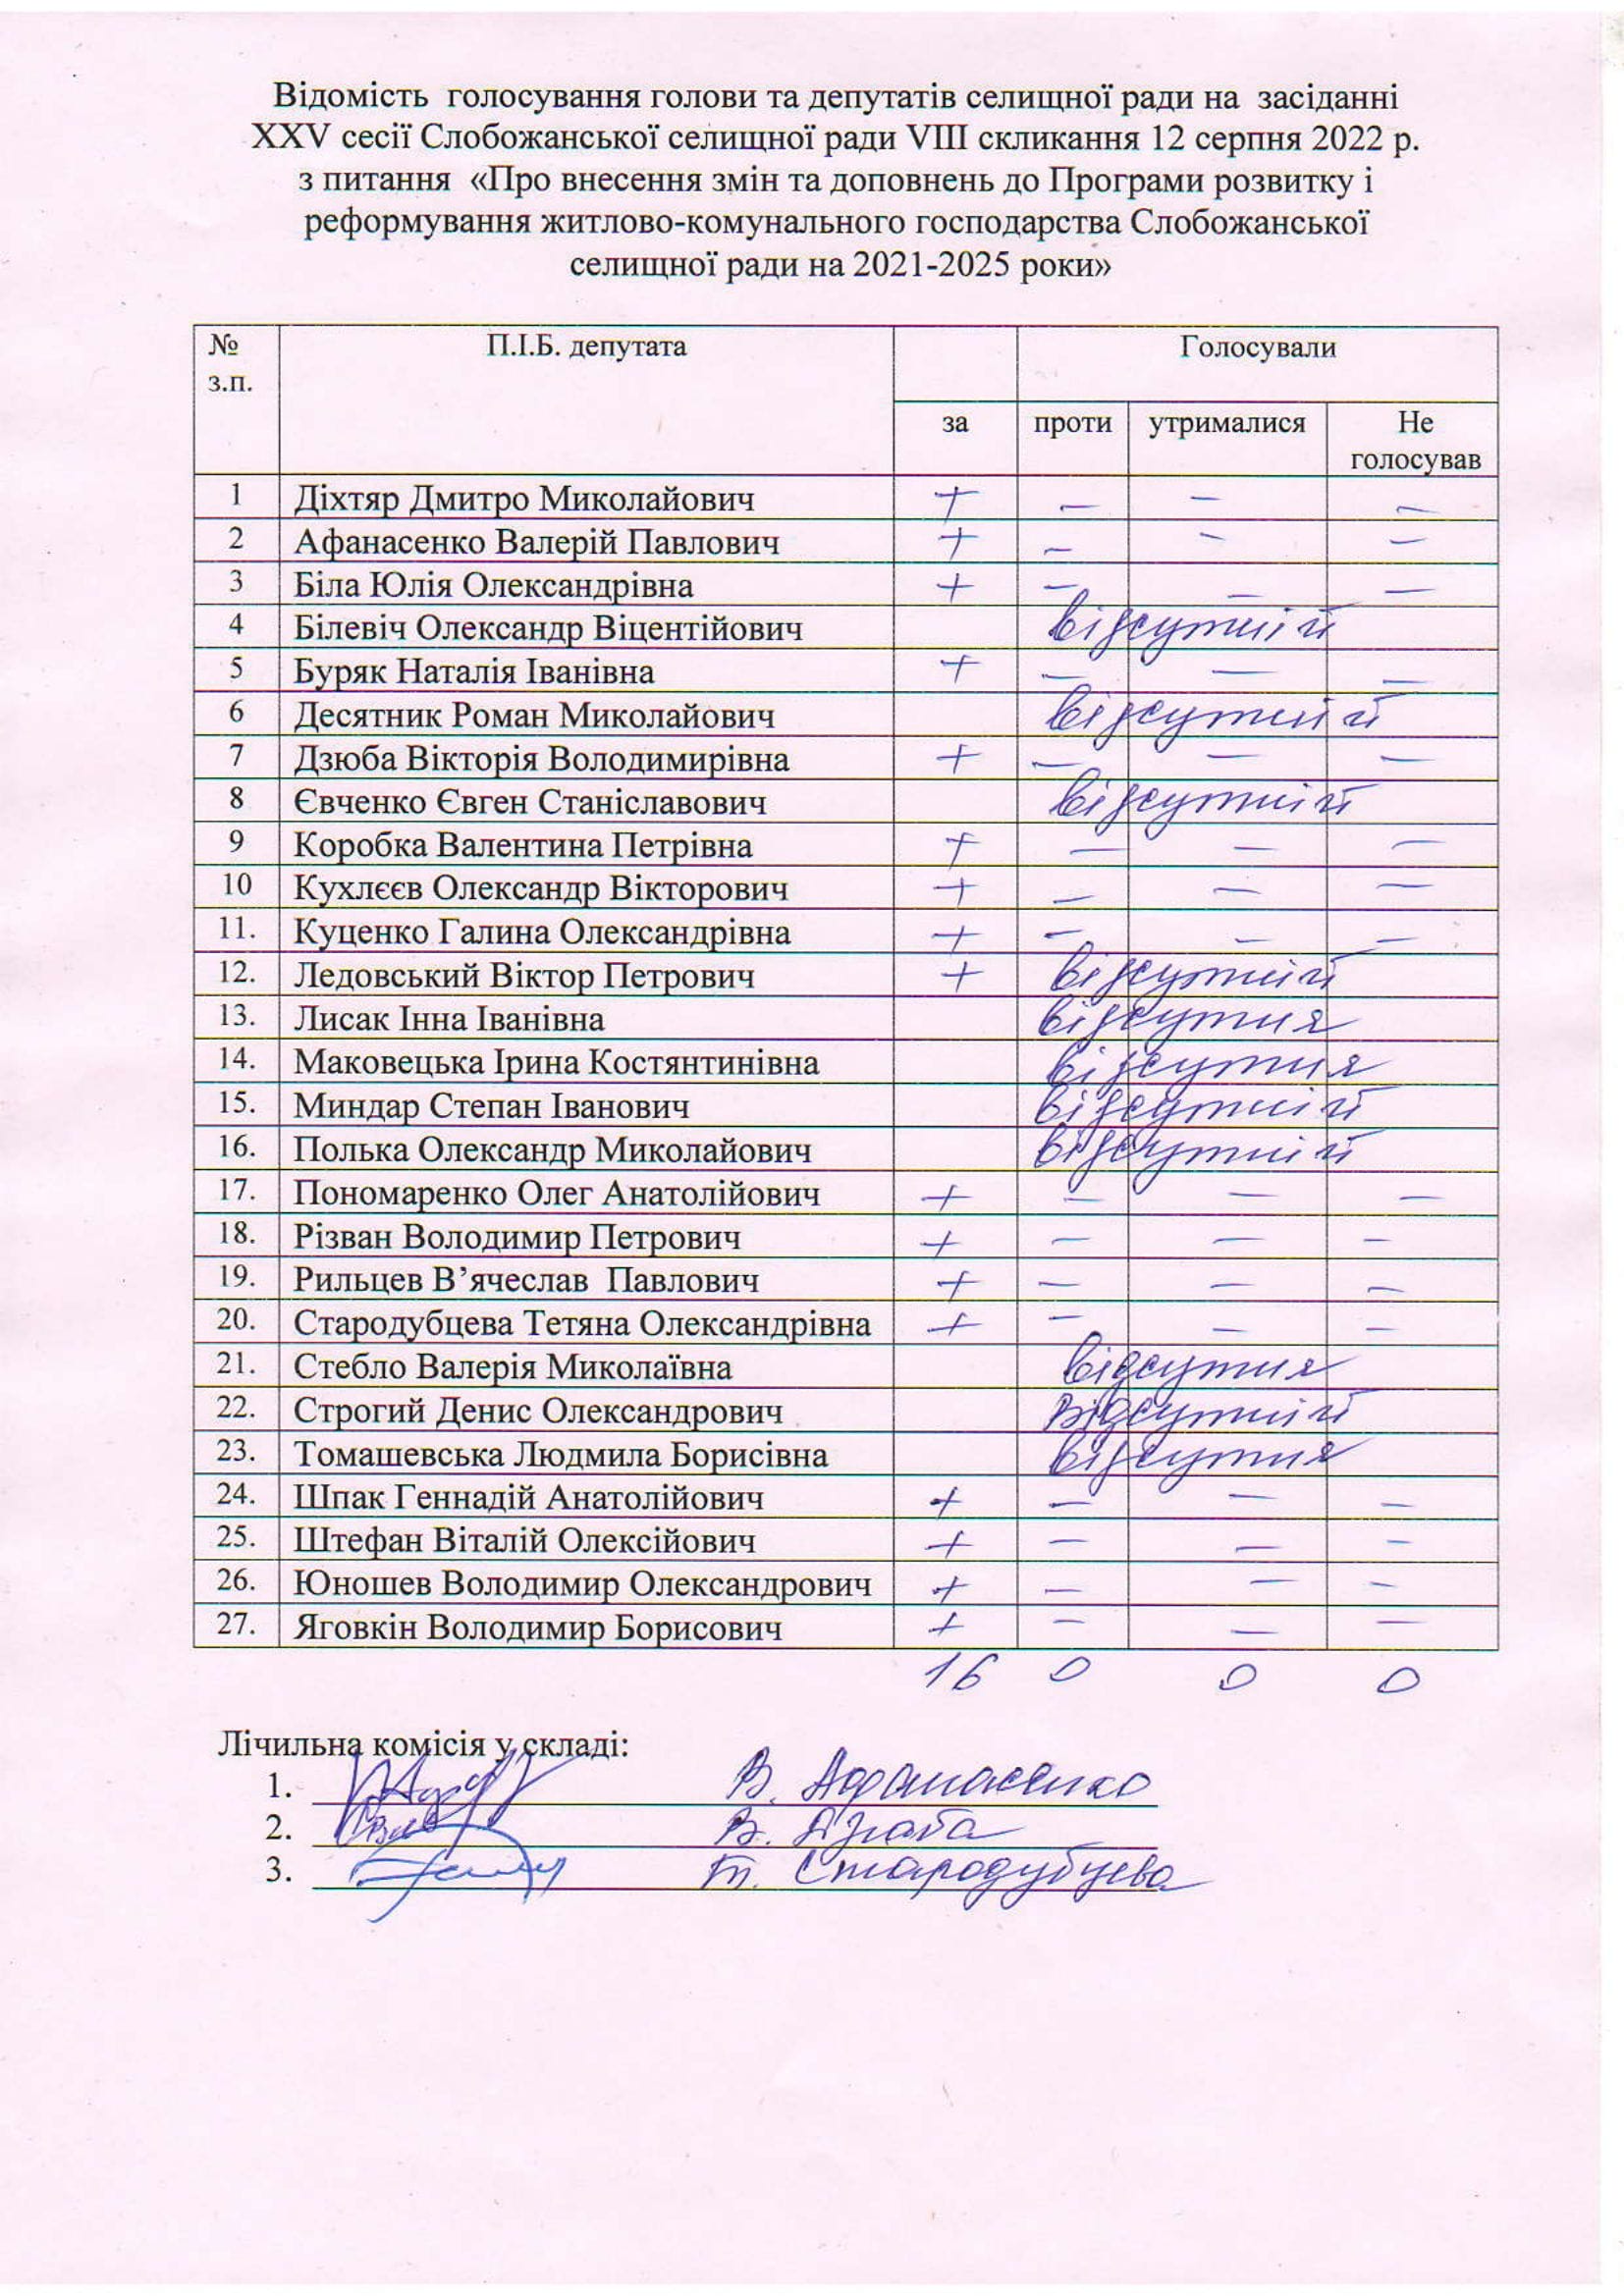 Відомість голосування голови та депутатів селищної ради на засіданні
XXV сесії Слобожанської селищної ради VIII скликання 12 серпня 2022 р.
з питання «Про внесення змін та доповнень до Програми розвитку і
реформування житлово-комунального господарства Слобожанської
селищної ради на 2021-2025 роки»
№ з.п. П.І.Б. депутата Голосували
за проти утрималися Не голосував
1 Діхтяр Дмитро Миколайович + — — —
2 Афанасенко Валерій Павлович + — — —
3 Біла Юлія Олександрівна + — — —
4 Білевіч Олександр Віцентійович відсутній
5 Буряк Наталія Іванівна + — — —
6 Десятник Роман Миколайович відсутній
7 Дзюба Вікторія Володимирівна + — — —
8 Євченко Євген Станіславович відсутній
9 Коробка Валентина Петрівна + — — —
10 Кухлєєв Олександр Вікторович + — — —
11. Куценко Галина Олександрівна + — — —
12. Ледовський Віктор Петрович + відсутній
13. Лисак Інна Іванівна відсутня
14. Маковецька Ірина Костянтинівна відсутня
15. Миндар Степан Іванович відсутній
16. Полька Олександр Миколайович відсутній
17. Пономаренко Олег Анатолійович + — — —
18. Різван Володимир Петрович + — — —
19. Рильцев В’ячеслав Павлович + — — —
20. Стародубцева Тетяна Олександрівна + — — —
21. Стебло Валерія Миколаївна відсутня
22. Строгий Денис Олександрович відсутній
23. Томашевська Людмила Борисівна відсутня
24. Шпак Геннадій Анатолійович + — — —
25. Штефан Віталій Олексійович + — — —
26. Юношев Володимир Олександрович + — — —
27. Яговкін Володимир Борисович + — — —
16 0 0 0
Лічильна комісія у складі:
1. В. Афанасенко
2. В. Дзюба
3. Т. Стародубцева